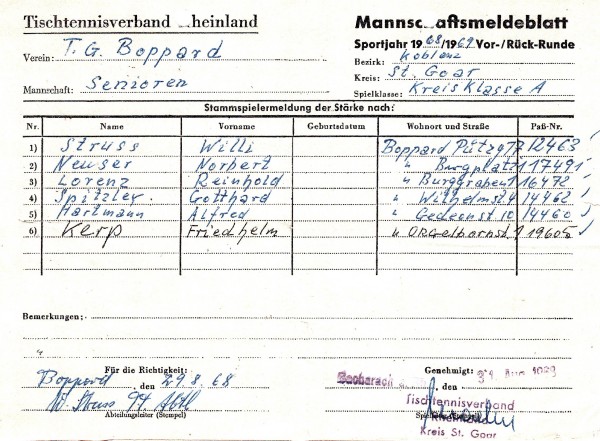 Tischtennisverband heinland
Mannsc aftsmeldeblatt
Sportjahr 1968/1969 Vor-/Rück-Runde
Verein: T. G. Boppard
Bezirk: Koblenz
Kreis: St. Goar
Mannschaft: Senioren
Spielklasse: Kreisklasse A
Stammspielermeldung der Stärke nach:
Nr. Name Vorname Geburtsdatum Wohnort und Straße Paß-Nr.
1) Struss Willi Boppard 12463
2) Neuser Norbert " Burgplatz 17491
3) Lorenz Reinhold " Burggraben 16472
4) Spitzley Gotthard " Wilhelmst. 14462
5) Hartmann Alfred " Gedeonst 10 14460
6) Kerp Friedhelm " Orgelbornst. 19605
Bemerkungen:
Für die Richtigkeit:
Genehmigt:
Boppard, den 29.8.68
Bacharach, den
W. Struss
Abteilungsleiter (Stempel)
Tischtennisverband
Rheinland
Kreis St. Goar